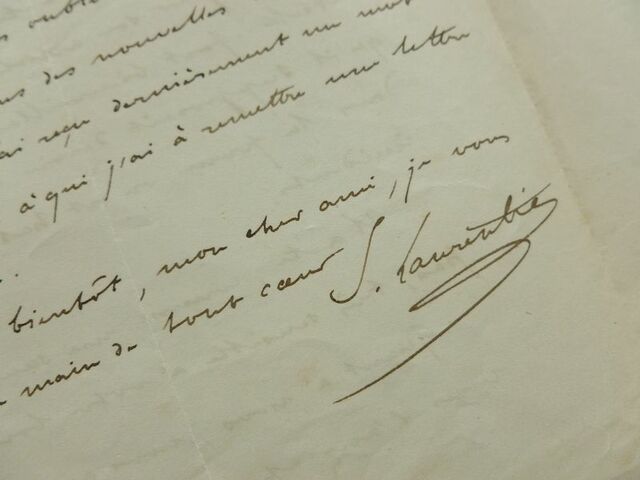 oublie
des nouvelles
reçu dernièrement un mot
à qui j'ai à remettre une lettre
bientôt, mon cher ami, je vous
main de tout cœur S. Laurentie